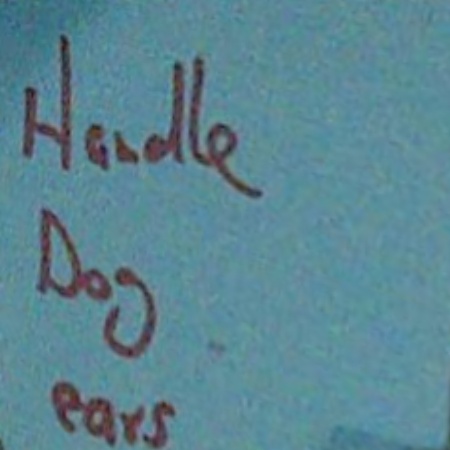 Handle
Dog
ears